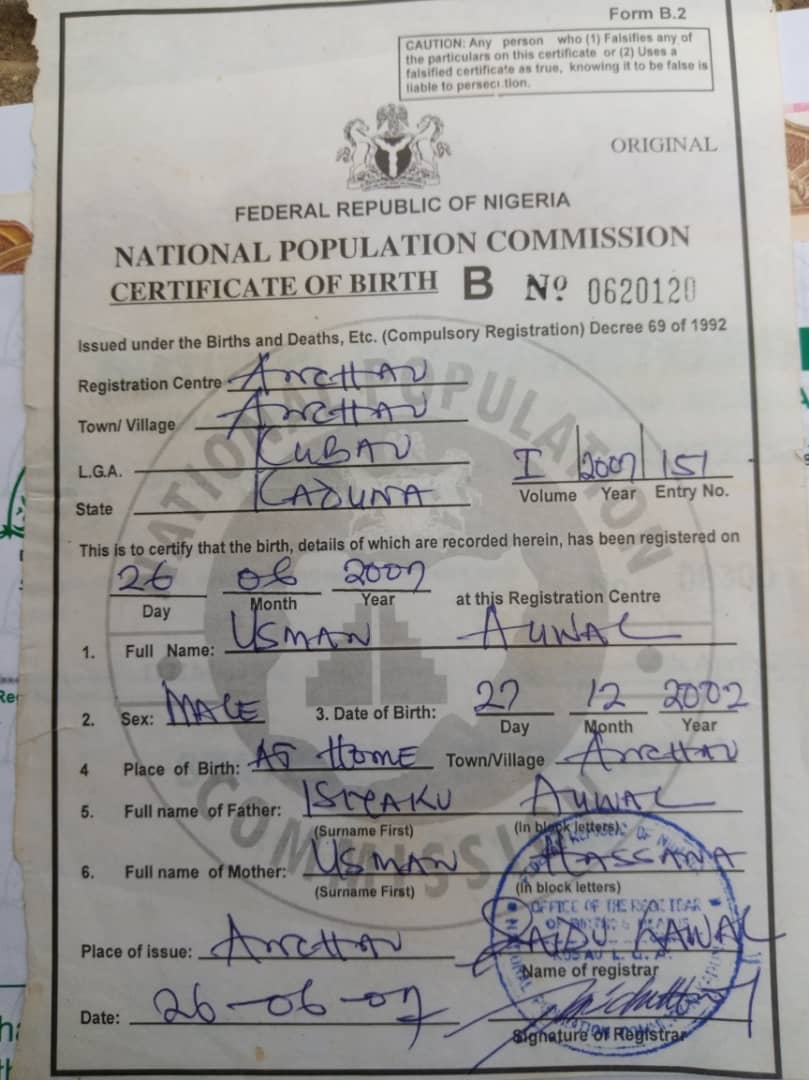 Form B.2
CAUTION: Any person who (1) Falsifies any of
the particulars on this certificate or (2) Uses a
falsified certificate as true, knowing it to be false is
liable to persecution.
ORIGINAL
FEDERAL REPUBLIC OF NIGERIA
NATIONAL POPULATION COMMISSION
CERTIFICATE OF BIRTH B Nº 0620120
Issued under the Births and Deaths, Etc. (Compulsory Registration) Decree 69 of 1992
Registration Centre ANCHAU
Town/ Village ANCHAU
L.G.A. KUBAU
State KADUNA
I 2007 151
Volume Year Entry No.
This is to certify that the birth, details of which are recorded herein, has been registered on
26 06 2007
Day Month Year at this Registration Centre
1. Full Name: USMAN AUWAL
2. Sex: MALE 3. Date of Birth: 27 12 2002
Day Month Year
4 Place of Birth: AT HOME Town/Village ANCHAU
5. Full name of Father: AUWAL
(Surname First) (In block letters)
6. Full name of Mother: USMAN HASSANA
(Surname First) (In block letters)
OFFICE OF THE REGISTRAR
Place of issue: ANCHAU SAIDU LAWAL
Name of registrar
Date: 26-06-07
Signature of Registrar